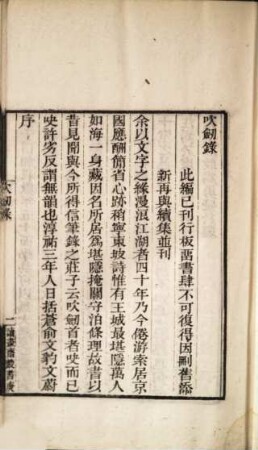 吹劍錄
此編已刊行板兩書肆不可復得因刪舊添
新再與續集並刊
余以文字之緣漫浪江湖者四十年乃今倦游索居京
國應酬簡省心跡稍寧東坡詩惟有王城最堪隱萬人
如海一身藏因名所居爲堪隱掩關守泊條理故書以
昔見聞與今所得信筆錄之莊子云吹劍首者吷而已
吷許劣反謂無韻也淳祐三年人日括蒼俞文豹文蔚
序
吹劍錄
一
讀畫齋叢書